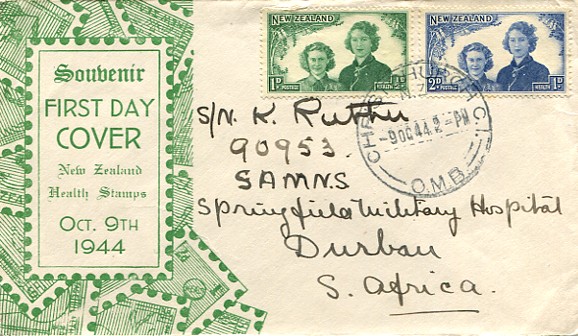 Souvenir
FIRST DAY
COVER
New Zealand
Health Stamps
OCT. 9TH
1944
NEW ZEALAND
1D POSTAGE HEALTH ½D
NEW ZEALAND
2D POSTAGE HEALTH 1D
CHRISTCHURCH C.1.
N.Z.
-9 OC 44 2 - PM
O.M.B.
S/N. K.
90953.
SAMNS
Springfield Military Hospital
Durban
S. Africa.